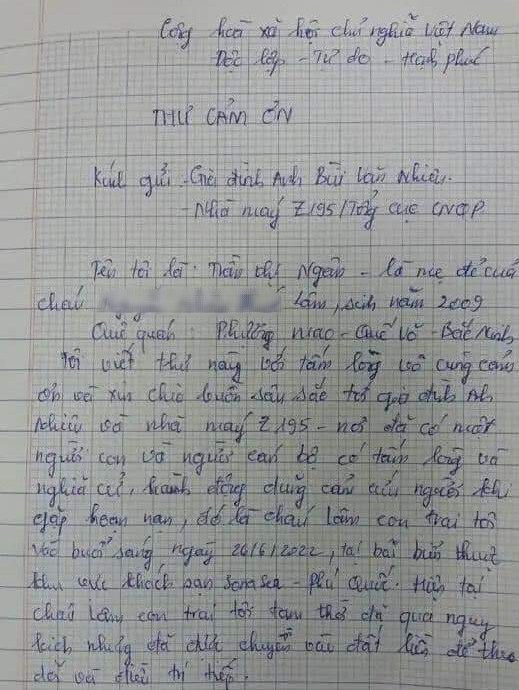 Cộng hoà xã hội chủ nghĩa Việt Nam
Độc lập - Tự do - Hạnh phúc
THƯ CẢM ƠN
Kính gửi - Gia đình Anh Bùi Văn Nhiên.
- Nhà máy Z195/Tổng cục CNQP
Tên tôi là: Trần thị Ngân - là mẹ đẻ của
cháu Lâm, sinh năm 2009
Quê quán: Phượng mao - Quế Võ - Bắc Ninh
Tôi viết thư này với tấm lòng vô cùng cảm
ơn và xin chia buồn sâu sắc tới gia đình Anh
Nhiên và nhà máy Z195 - nơi đã có một
người con và người cán bộ có tấm lòng và
nghĩa cử, hành động dũng cảm cứu người khi
gặp hoạn nạn, đó là cháu Lâm con trai tôi
vào buổi sáng ngày 26/6/2022, tại bãi biển thuộc
khu vực khách sạn Sonasea - Phú Quốc. Hiện tại
cháu Lâm con trai tôi tạm thời đã qua nguy
kịch nhưng đã được chuyển vào đất liền để theo
dõi và điều trị tiếp.